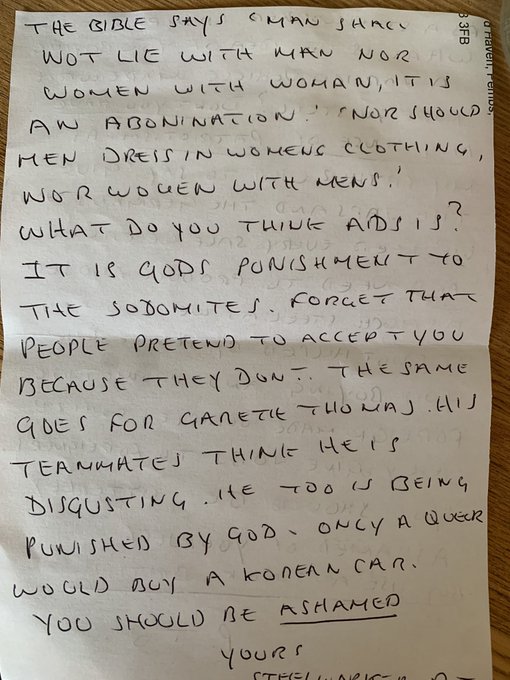 THE BIBLE SAYS 'MAN SHALL
NOT LIE WITH MAN NOR
WOMEN WITH WOMAN, IT IS
AN ABONINATION.' 'NOR SHOULD
MEN DRESS IN WOMENS CLOTHING,
NOR WOMEN WITH MENS.'
WHAT DO YOU THINK AIDS IS?
IT IS GODS PUNISHMENT TO
THE SODOMITES. FORGET THAT
PEOPLE PRETEND TO ACCEPT YOU
BECAUSE THEY DON'T. THE SAME
GOES FOR GARETH THOMAS. HIS
TEAMMATES THINK HE IS
DISGUSTING. HE TOO IS BEING
PUNISHED BY GOD. ONLY A QUEER
WOULD BUY A KOREAN CAR.
YOU SHOULD BE ASHAMED
YOURS
Haven, Pembs,
3FB